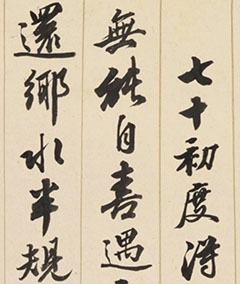 七十初度得
無能自喜遇
還鄉水半規